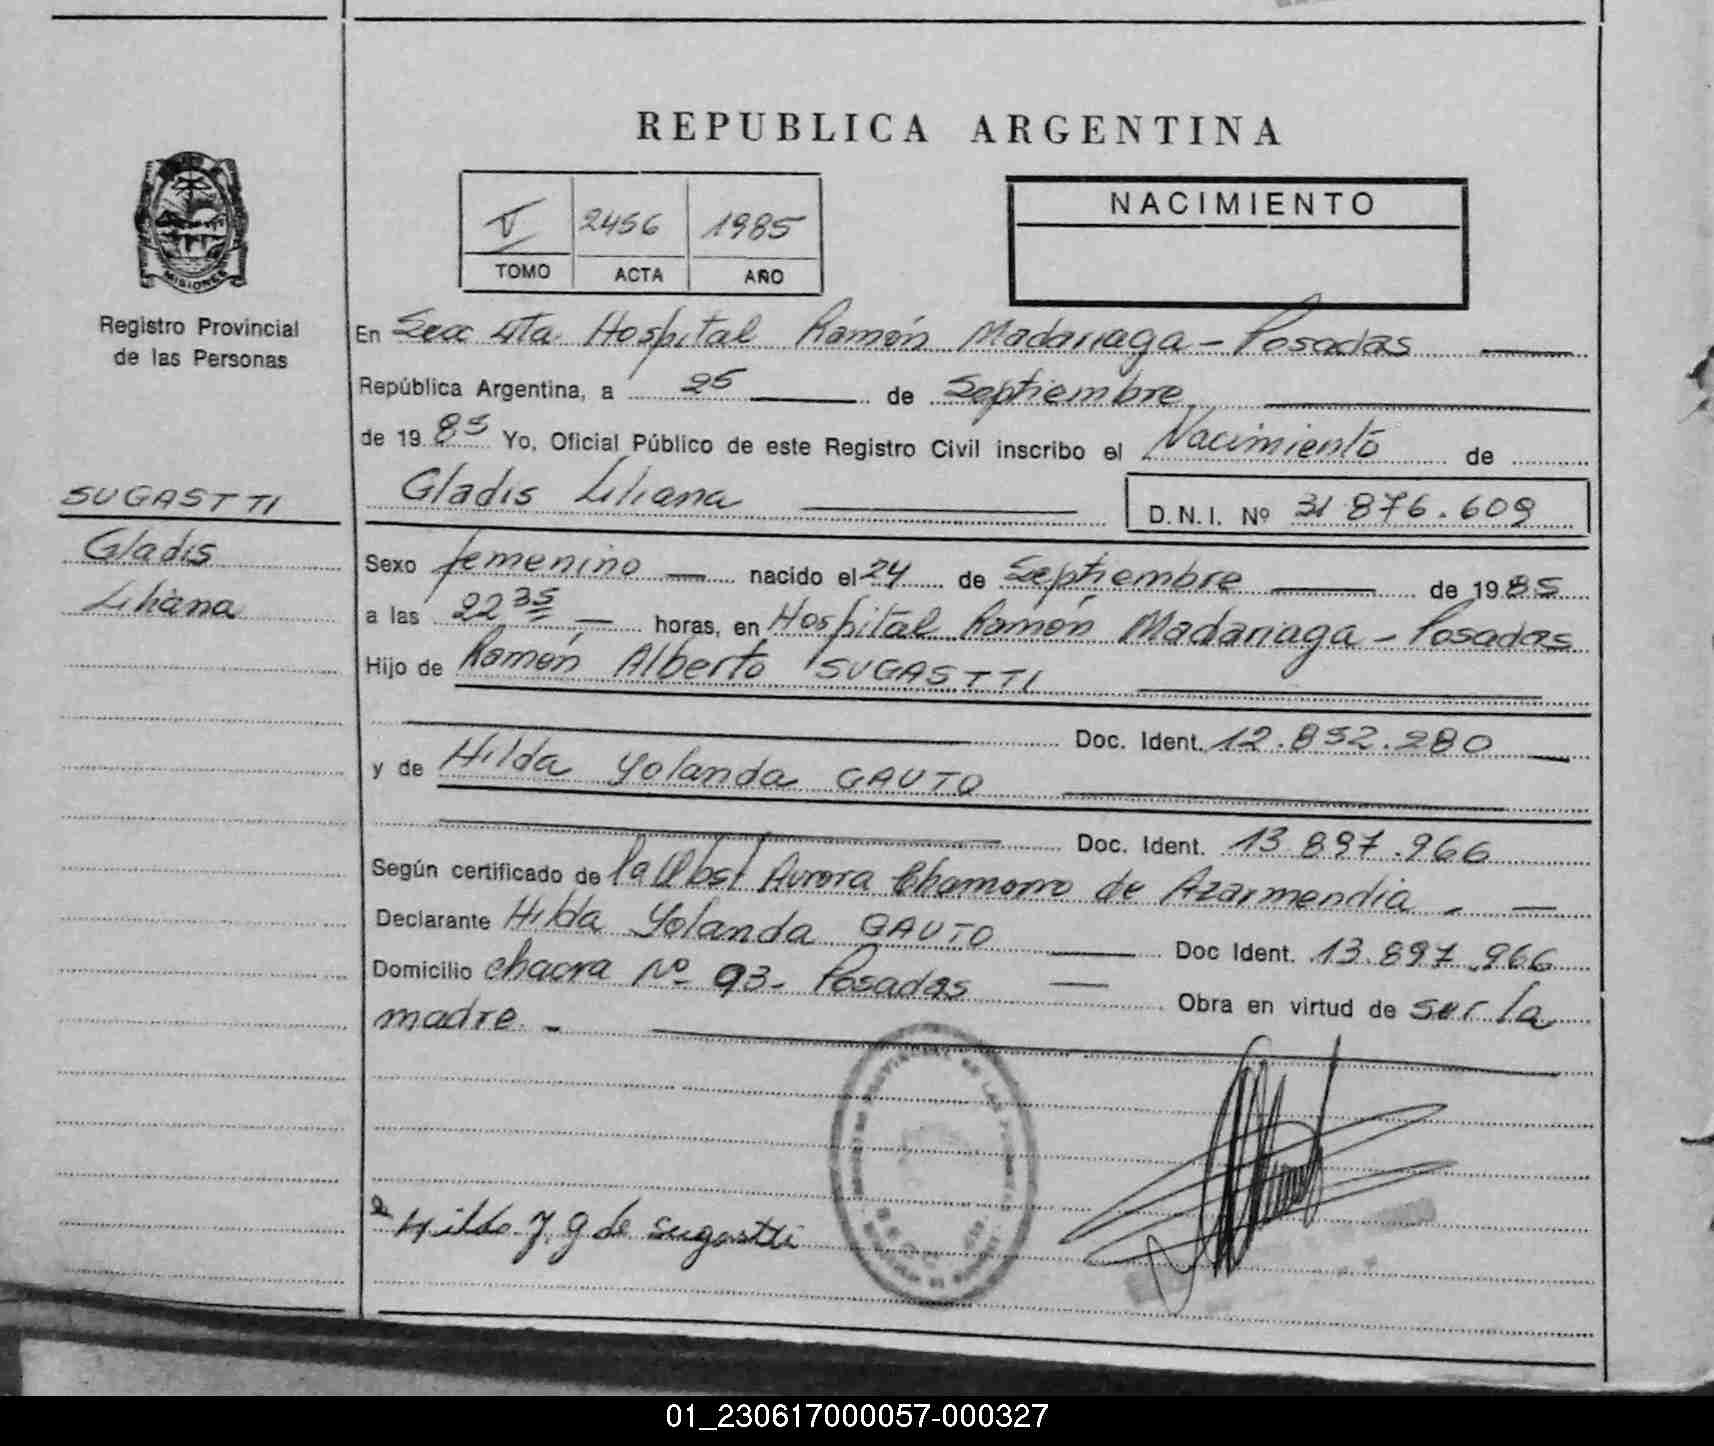 REPUBLICA ARGENTINA
V 2456 1985
TOMO ACTA AÑO
NACIMIENTO
MISIONES
Registro Provincial
de las Personas
En Secc 4ta. Hospital Ramón Madariaga - Posadas
República Argentina, a 25 de Septiembre
de 19 85 Yo, Oficial Público de este Registro Civil inscribo el Nacimiento de
Gladis Liliana D.N.I. Nº 31 876.609
SUGASTTI
Gladis
Liliana
Sexo femenino nacido el 24 de Septiembre de 19 85
a las 22 35 horas, en Hospital Ramón Madariaga - Posadas
Hijo de Ramón Alberto SUGASTTI
Doc. Ident. 12.852.280
y de Hilda Yolanda GAUTO
Doc. Ident. 13 897.966
Según certificado de la Obst Aurora Chamorro de Azarmendia
Declarante Hilda Yolanda GAUTO Doc Ident. 13.897.966
Domicilio chacra Nº 93- Posadas Obra en virtud de ser la
madre. -
Hilda Y. G de Sugastti
01_230617000057-000327